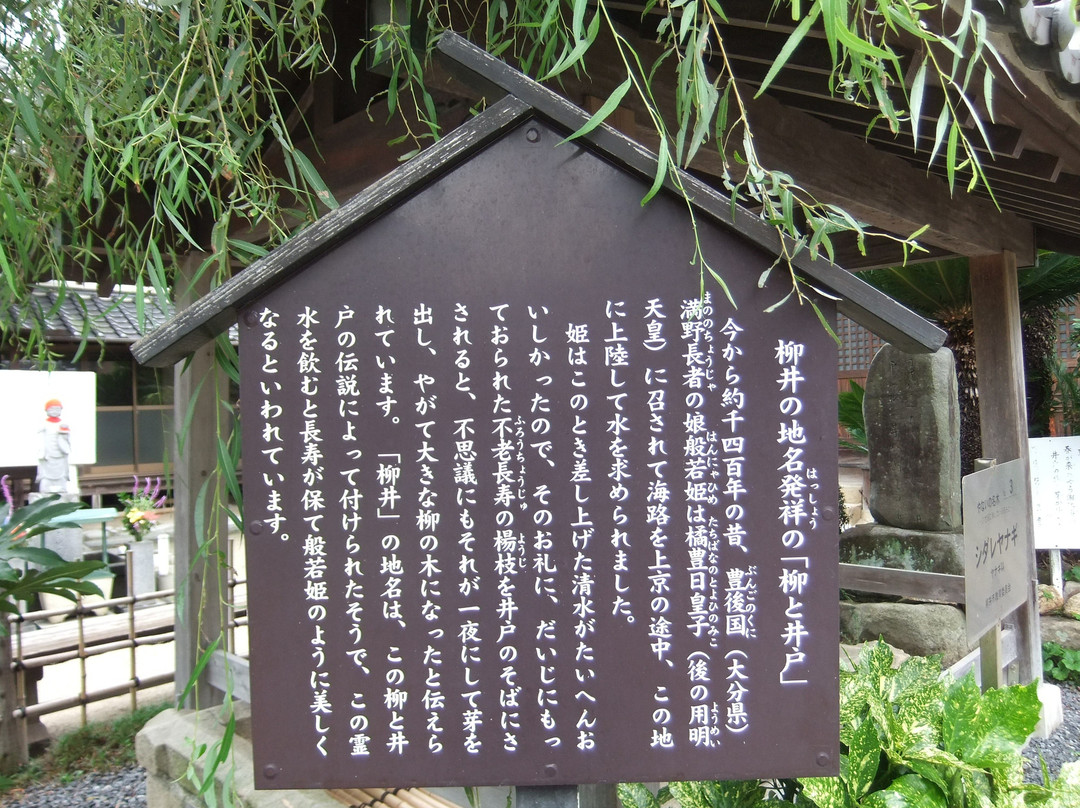 柳井の地名発祥の「柳と井戸」
はっしょう
今から約千四百年の昔、豊後国（大分県）
ぶんごのくに
満野長者の娘般若姫は橘豊日皇子（後の用明
まののちょうじゃ
はんにゃひめ
たちばなのとよひのみこ
ようめい
天皇）に召されて海路を上京の途中、この地
に上陸して水を求められました。
姫はこのとき差し上げた清水がたいへんお
いしかったので、そのお礼に、だいじにもっ
ておられた不老長寿の楊枝を井戸のそばにさ
ふろうちょうじゅ
ようじ
されると、不思議にもそれが一夜にして芽を
出し、やがて大きな柳の木になったと伝えら
れています。「柳井」の地名は、この柳と井
戸の伝説によって付けられたそうで、この霊
水を飲むと長寿が保て般若姫のように美しく
なるといわれています。
3
シダレヤナギ
ヤナギ科